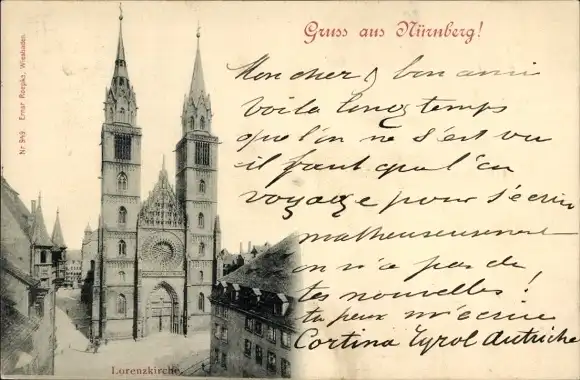 Gruss aus Nürnberg!
Nr 949 Ernst Roepke, Wiesbaden.
Mon cher & bon ami
Voila longtemps
que l'on ne s'est vu
il faut que l'on
voyage pour s'écrire
malheureusement
on n'a pas de
tes nouvelles!
tu peux m'écrire
Cortina Tyrol Autriche
Lorenzkirche.